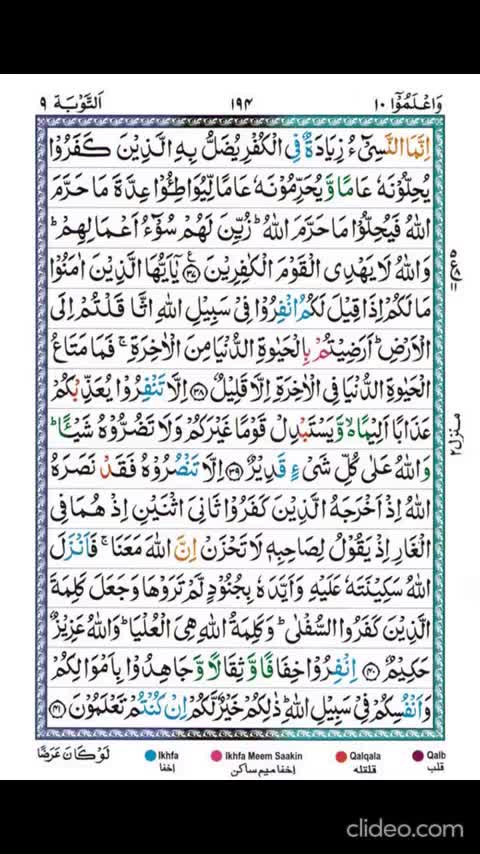 وَاعْلَمُوْٓا ١٠
١٩٤
اَلتَّوْبَة ٩
اِنَّمَا النَّسِيْٓءُ زِيَادَةٌ فِي الْكُفْرِ يُضَلُّ بِهِ الَّذِيْنَ كَفَرُوْا
يُحِلُّوْنَهٗ عَامًا وَّ يُحَرِّمُوْنَهٗ عَامًا لِّيُوَاطِـُٔوْا عِدَّةَ مَا حَرَّمَ
اللّٰهُ فَيُحِلُّوْا مَا حَرَّمَ اللّٰهُ ؕ زُيِّنَ لَهُمْ سُوْٓءُ اَعْمَالِهِمْ ؕ
وَاللّٰهُ لَا يَهْدِى الْقَوْمَ الْكٰفِرِيْنَ ٣٧ يٰۤاَيُّهَا الَّذِيْنَ اٰمَنُوْا
مَا لَكُمْ اِذَا قِيْلَ لَكُمُ انْفِرُوْا فِىْ سَبِيْلِ اللّٰهِ اثَّاقَلْتُمْ اِلَى
الْاَرْضِ ؕ اَرَضِيْتُمْ بِالْحَيٰوةِ الدُّنْيَا مِنَ الْاٰخِرَةِ ۚ فَمَا مَتَاعُ
الْحَيٰوةِ الدُّنْيَا فِى الْاٰخِرَةِ اِلَّا قَلِيْلٌ ٣٨ اِلَّا تَنْفِرُوْا يُعَذِّبْكُمْ
عَذَابًا اَلِيْمًا ۙ وَّ يَسْتَبْدِلْ قَوْمًا غَيْرَكُمْ وَلَا تَضُرُّوْهُ شَيْـًٔا ؕ
وَاللّٰهُ عَلٰى كُلِّ شَىْءٍ قَدِيْرٌ ٣٩ اِلَّا تَنْصُرُوْهُ فَقَدْ نَصَرَهُ
اللّٰهُ اِذْ اَخْرَجَهُ الَّذِيْنَ كَفَرُوْا ثَانِىَ اثْنَيْنِ اِذْ هُمَا فِى
الْغَارِ اِذْ يَقُوْلُ لِصَاحِبِهٖ لَا تَحْزَنْ اِنَّ اللّٰهَ مَعَنَا ۚ فَاَنْزَلَ
اللّٰهُ سَكِيْنَتَهٗ عَلَيْهِ وَاَيَّدَهٗ بِجُنُوْدٍ لَّمْ تَرَوْهَا وَجَعَلَ كَلِمَةَ
الَّذِيْنَ كَفَرُوا السُّفْلٰى ؕ وَكَلِمَةُ اللّٰهِ هِىَ الْعُلْيَا ؕ وَاللّٰهُ عَزِيْزٌ
حَكِيْمٌ ٤٠ اِنْفِرُوْا خِفَافًا وَّ ثِقَالًا وَّ جَاهِدُوْا بِاَمْوَالِكُمْ
وَاَنْفُسِكُمْ فِىْ سَبِيْلِ اللّٰهِ ؕ ذٰلِكُمْ خَيْرٌ لَّكُمْ اِنْ كُنْتُمْ تَعْلَمُوْنَ ٤١
منزل٢
لَوْ كَانَ عَرَضًا
Ikhfa
اخفا
Ikhfa Meem Saakin
اخفا میم ساکن
Qalqala
قلقله
Qalb
قلب
clideo.com